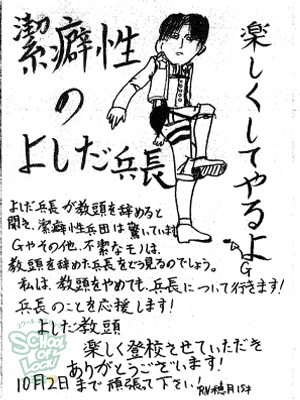 潔癖性
の
よしだ兵長
楽しくしてやるよ
G
よしだ兵長が教頭を辞めると
聞き、潔癖性兵団は驚いています
Gやその他、不潔なモノは、
教頭を辞めた兵長をどう見るのでしょう。
私は、教頭をやめても、兵長について行きます!
兵長のことを応援します!
よしだ教頭
楽しく登校させていただき
ありがとうございます!
10月2日まで頑張って下さい!
RN穂月15才
SCHOOL OF LOCK!